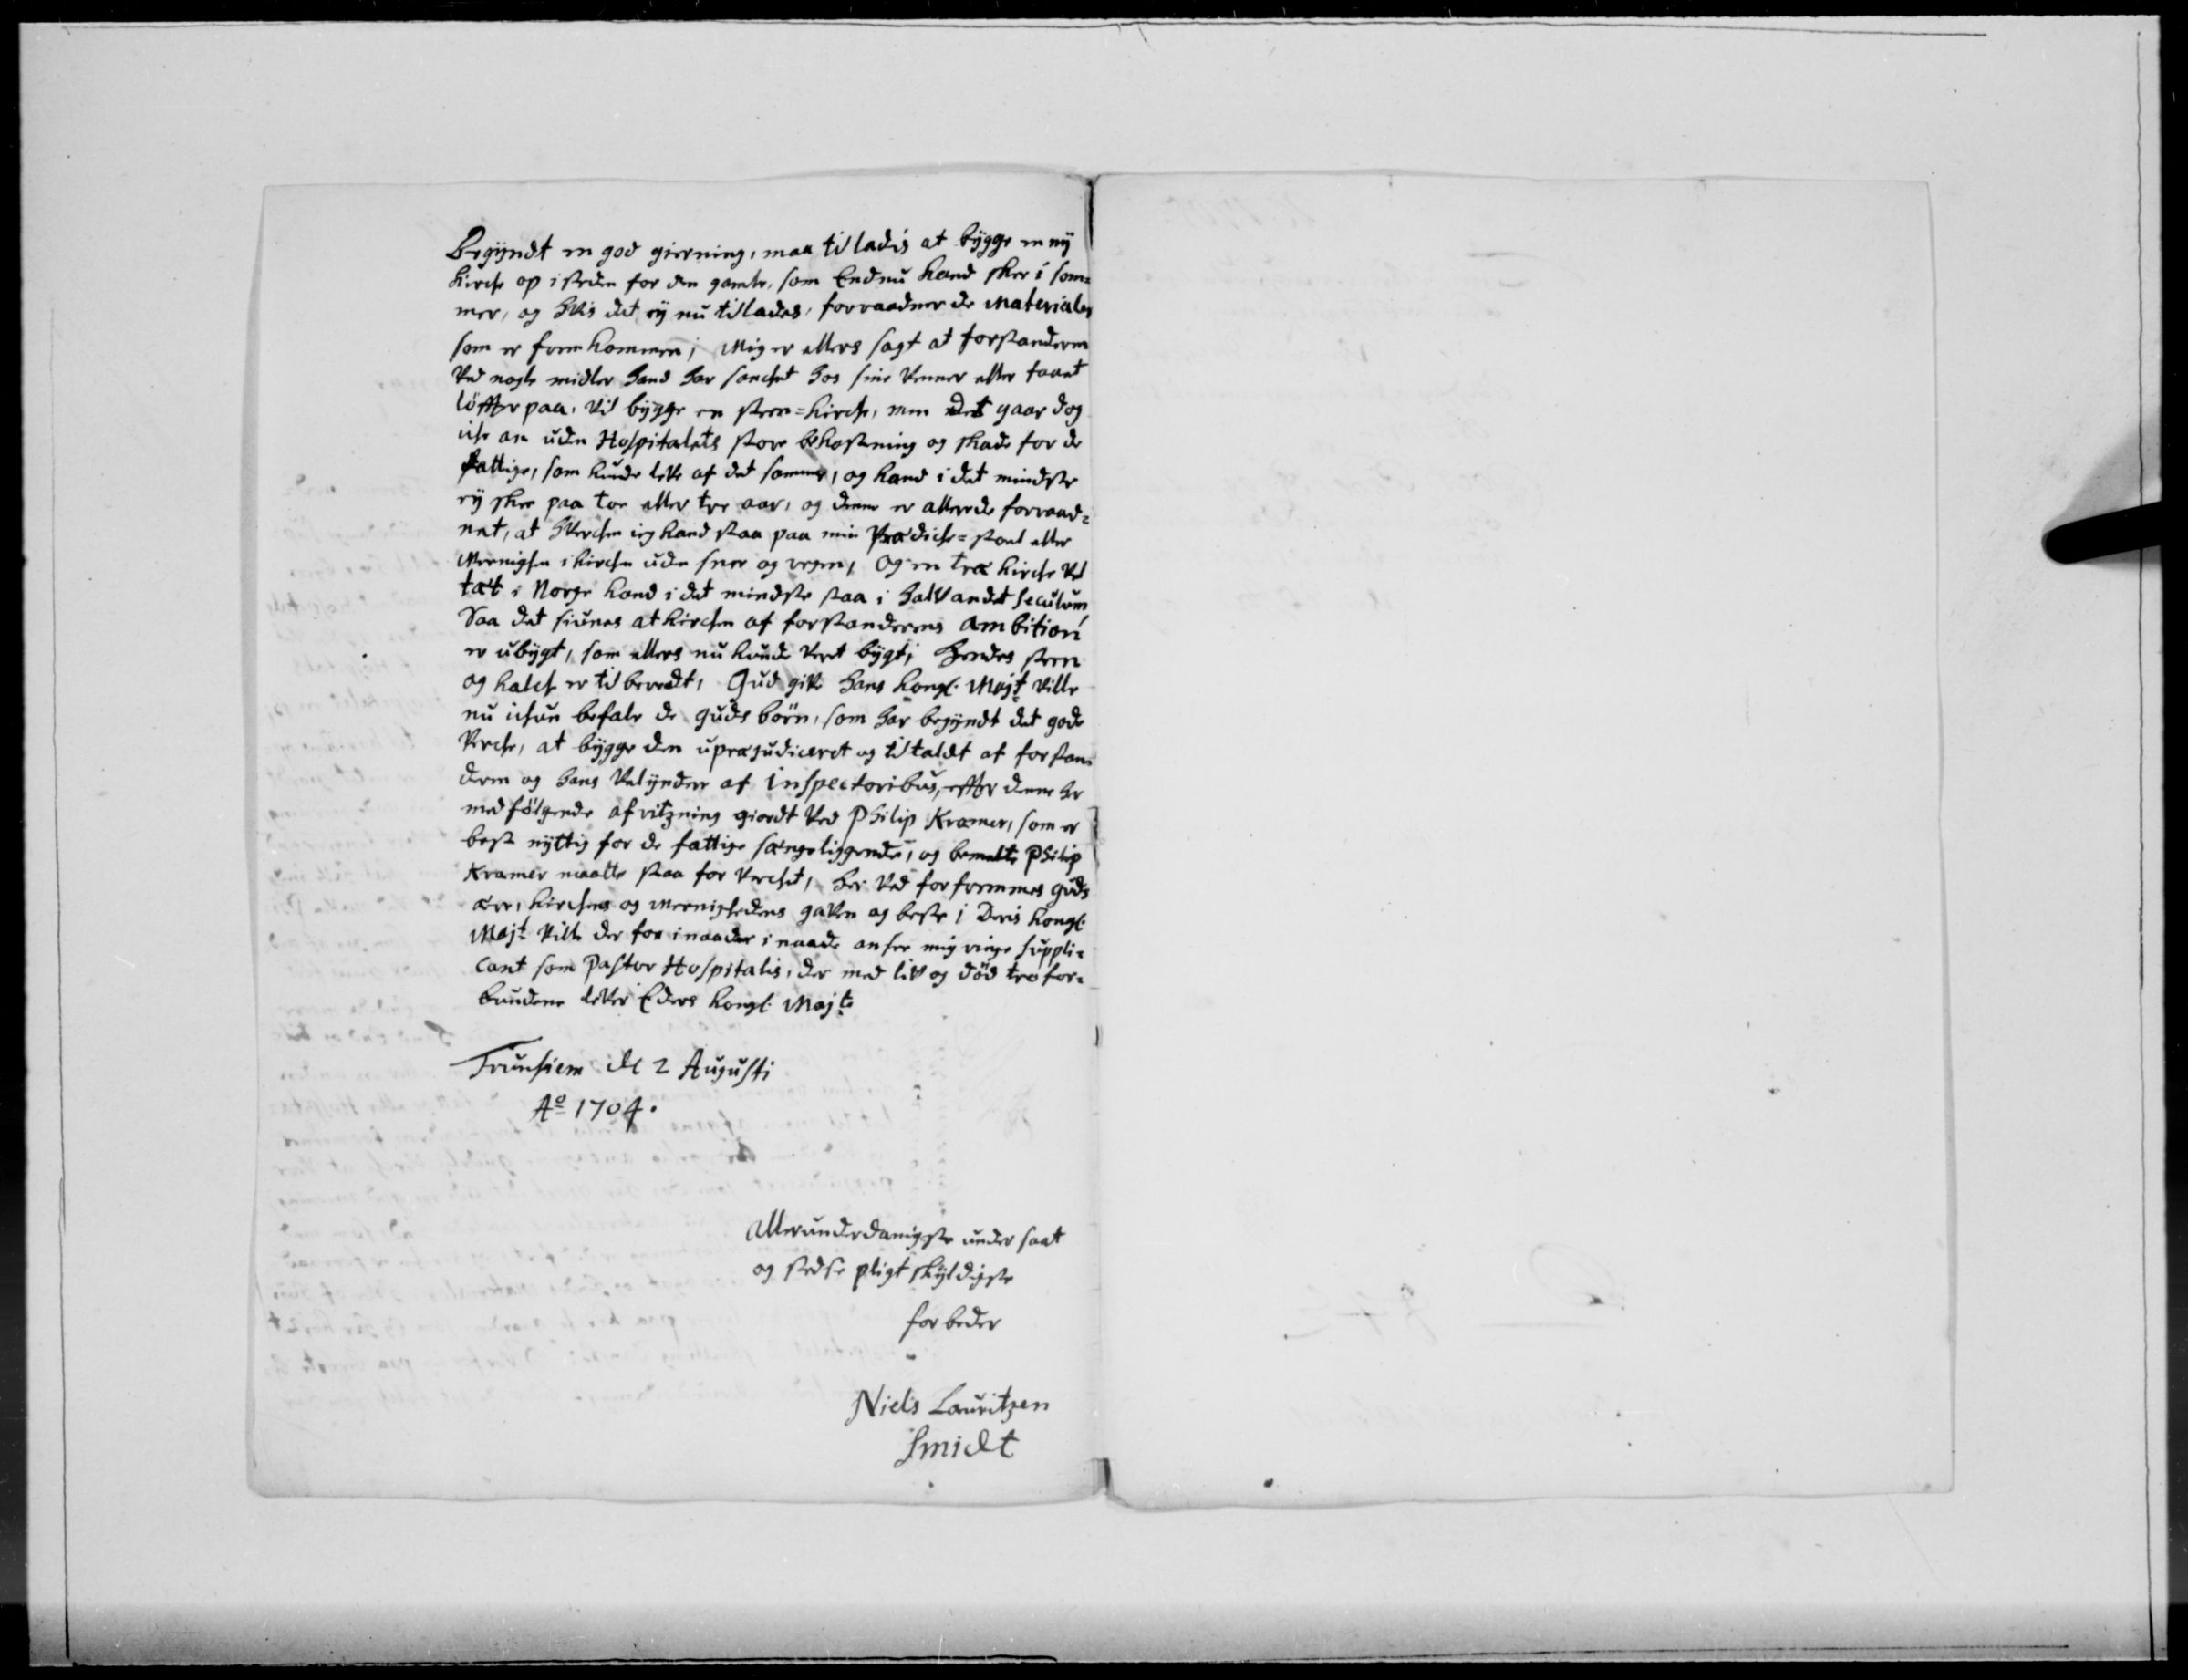 Begyndt en god gierning, maa tilladis at bygge en ny
kirche op i steden for den gamle, som Endnu kand skee i som=
mer, og hvis det ey nu tillades, forraadner de Materialer
som er fremkommen; Mig er ellers sagt at forstanderen
ved nogle midler hand har sanchet hos sine venner eller faaet
löffter paa, vil bygge en steen=kirche, men det gaar dog
iche an uden Hospitalets store bekostning og skade for de
fattige, som kunde leve af det samme, og kand i det mindste
ey skee paa toe eller tre aar, og denne er allerede forraad=
net, at hverchen ieg kand staa paa min Prædiche=stoel eller
Meenighen i kirchen uden snee og regn, Og en træ kirche vel
tæt i Norge kand i det mindste staa i halvandet seculum
Saa det siunes at kirchen af forstanderens ambition
er ubygt, som ellers nu kunde veret bygt; hendes steen
og kalch er til beredt, Gud give hans kongl. Majt ville
nu ichun befale de guds börn, som har begyndt det gode
verche, at bygge den upræjudiceret og tiltaldt af forstan=
deren og hans velyndere af Inspectoribus, effter denne her
medfölgende afritzning giordt ved Philip Kramer, som er
best nyttig for de fattige sængeliggende, og bemelte Philip
Kramer maatte staa for verchet, her ved forfremmes guds
ære, kirchens og meenighedens gavn og beste; Deris kongl.
Majt. ville der for i naader i naade ansee mig ringe suppli=
cant som Pastor Hospitalis, der med liv og död tro for=
bundene lever Eders kongl. Majt.
Trunhiem de 2 Augusti
Ao 1704.
Allerunderdanigste undersaat
og stedse pligt skyldigste
forbeder
Niels Lauritzen
Smidt